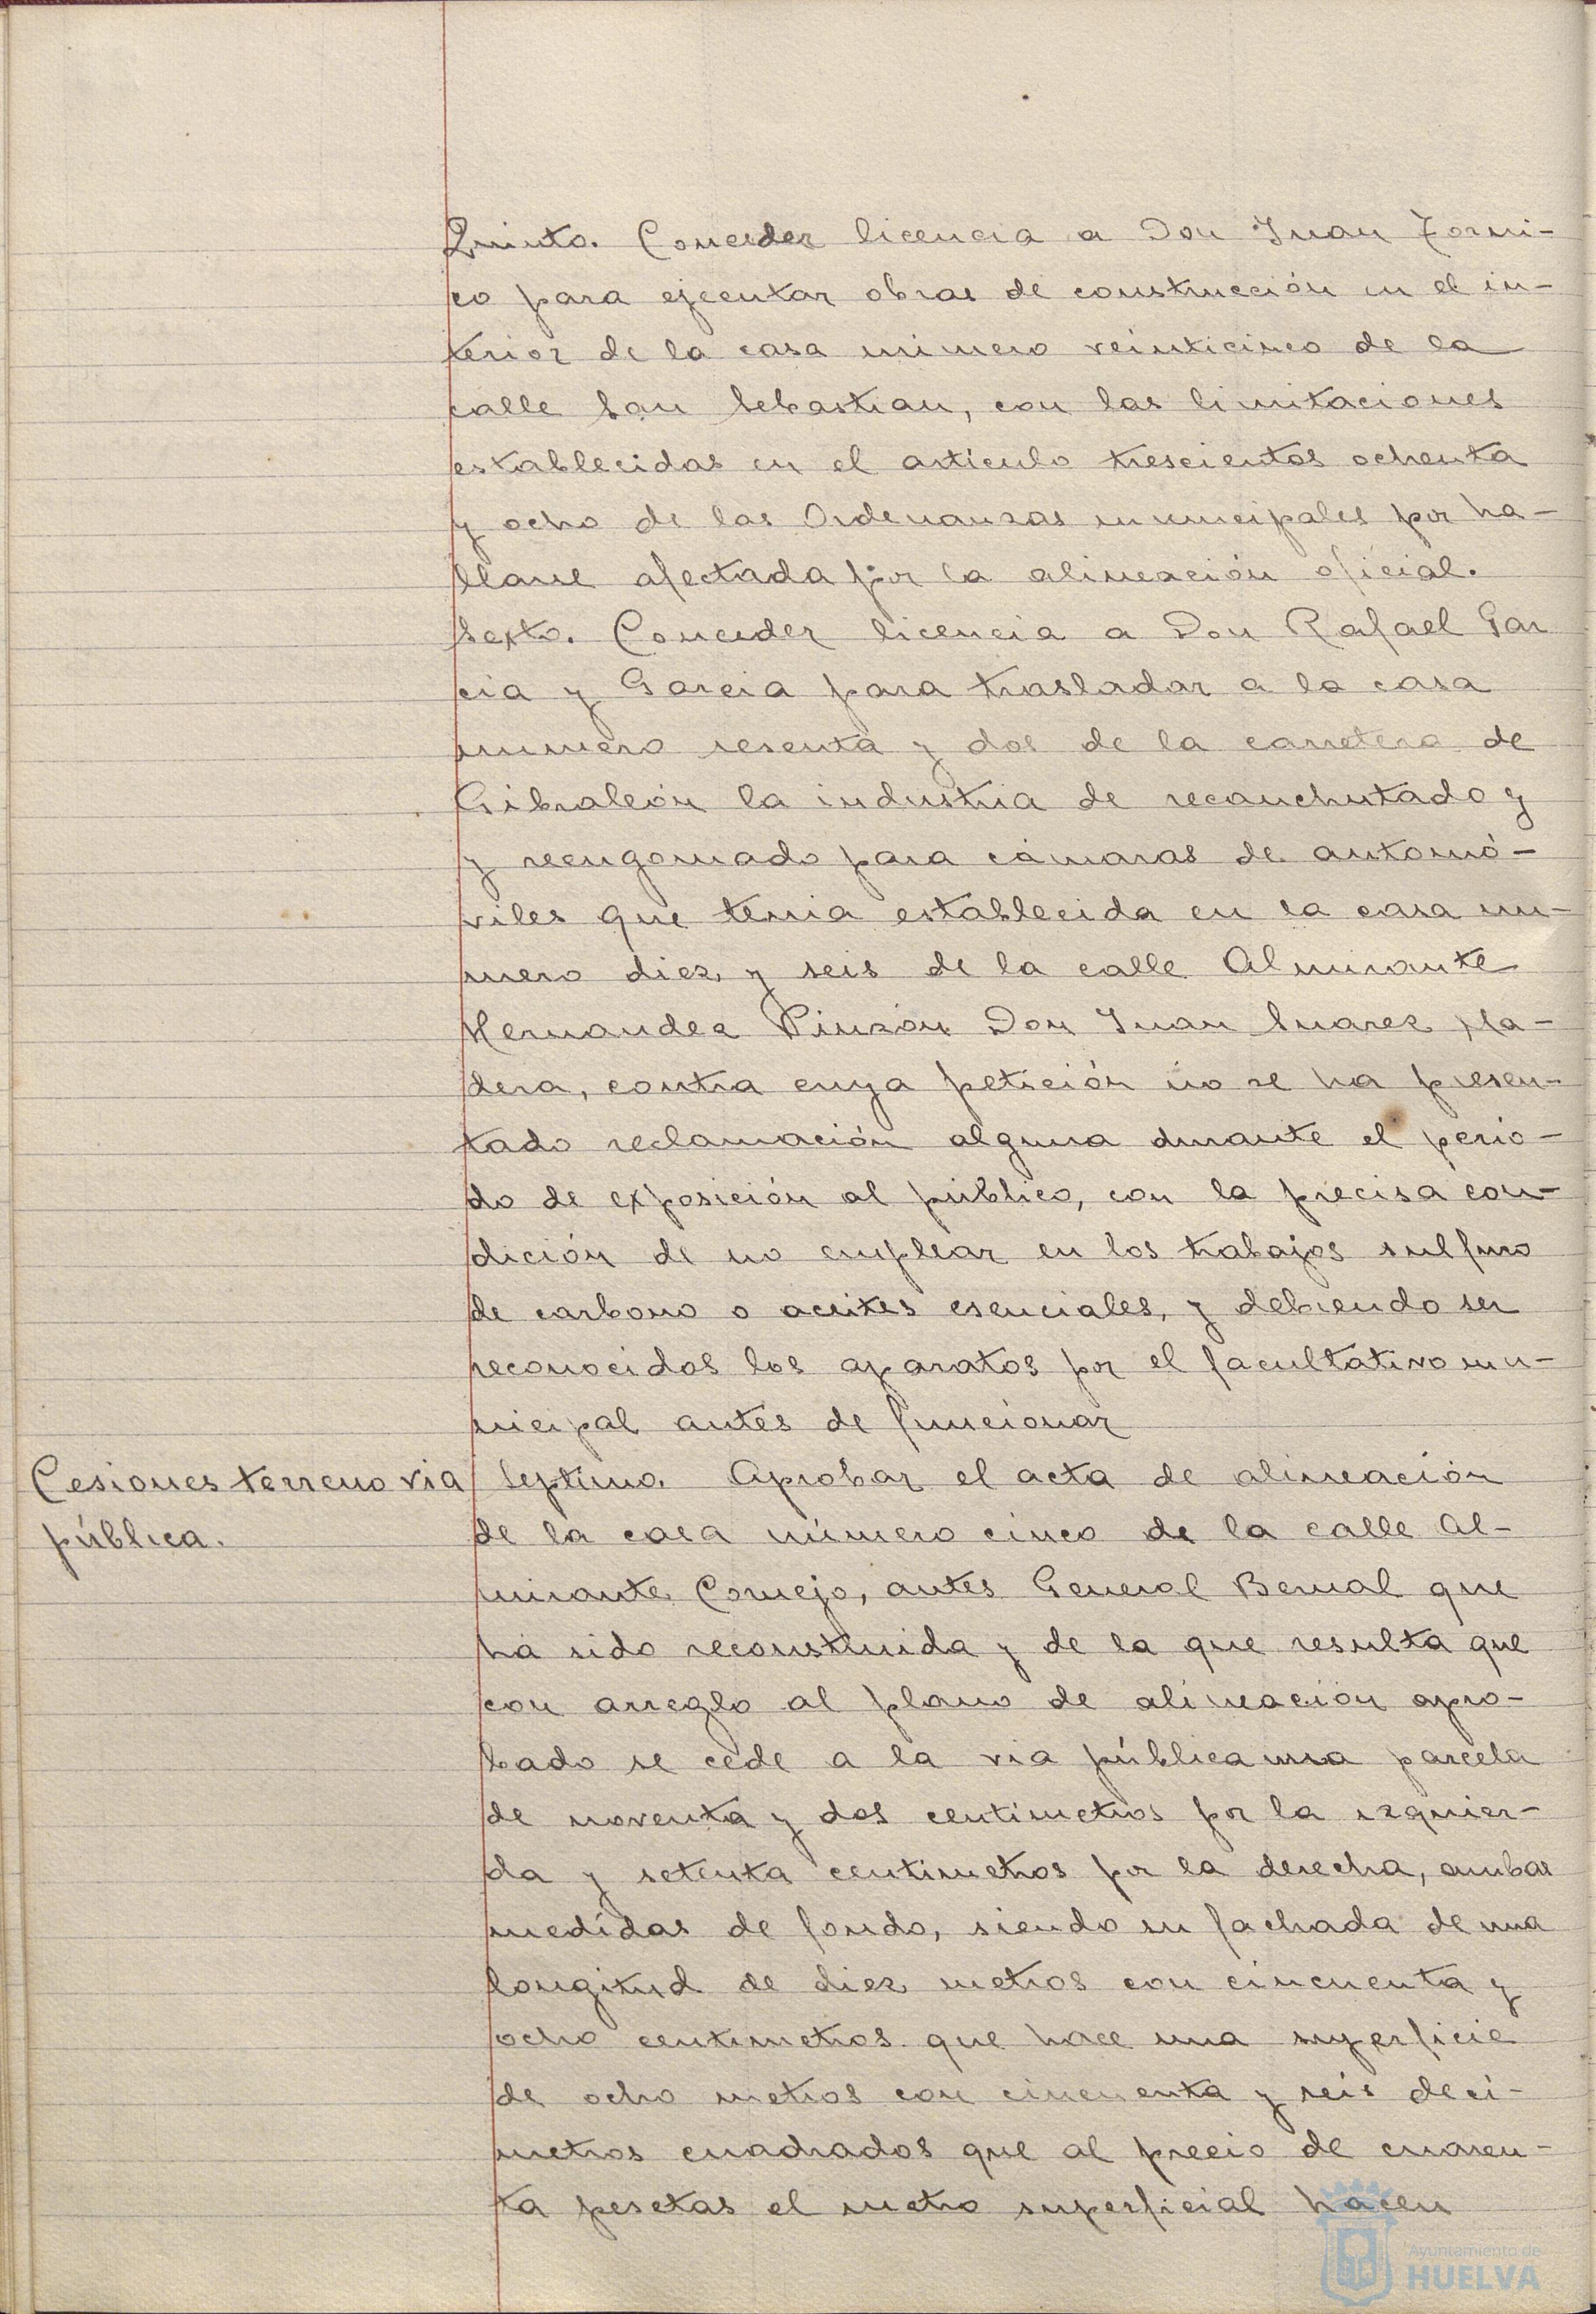 Quinto. Conceder licencia a Don Juan Torni-
co para ejecutar obras de construcción en el in-
terior de la casa número veinticinco de la
calle San Sebastian, con las limitaciones
establecidas en el artículo trescientos ochenta
y ocho de las Ordenanzas municipales por ha-
llarse afectada por la alineación oficial.
Sexto. Conceder licencia a Don Rafael Gar
cia y Garcia para trasladar a la casa
numero sesenta y dos de la carretera de
Gibraleón la industria de recauchutado y
y reengomado para cámaras de automó-
viles que tenia establecida en la casa nu-
mero diez y seis de la calle Almirante
Hernandez Pinzón Don Juan Suarez Ma-
dera, contra cuya petición no se ha presen-
tado reclamación alguna durante el perio-
do de exposición al público, con la precisa con-
dición de no emplear en los trabajos sulfuro
de carbono o aceites esenciales, y debiendo ser
reconocidos los aparatos por el facultativo mu-
nicipal antes de funcionar
Cesiones terreno via
pública.
Septimo. Aprobar el acta de alineación
de la casa número cinco de la calle Al-
mirante Cornejo, antes General Bernal que
ha sido reconstruida y de la que resulta que
con arreglo al plano de alineación apro-
bado se cede a la via pública una parcela
de noventa y dos centimetros por la izquier-
da y setenta centimetros por la derecha, ambas
medidas de fondo, siendo su fachada de una
longitud de diez metros con cincuenta y
ocho centimetros que hace una superficie
de ocho metros con cincuenta y seis deci-
metros cuadrados que al precio de cuaren-
ta pesetas el metro superficial hacen
Ayuntamiento de
HUELVA